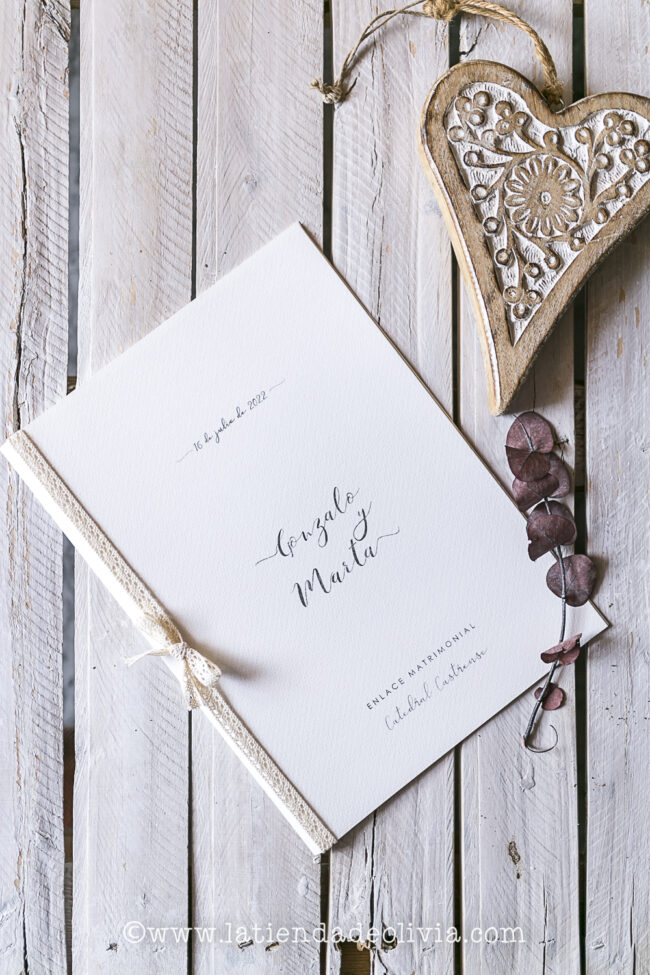 16 de julio de 2022
Gonzalo
y
Marta
ENLACE MATRIMONIAL
Catedral Castrense
©www.latiendadeolivia.com